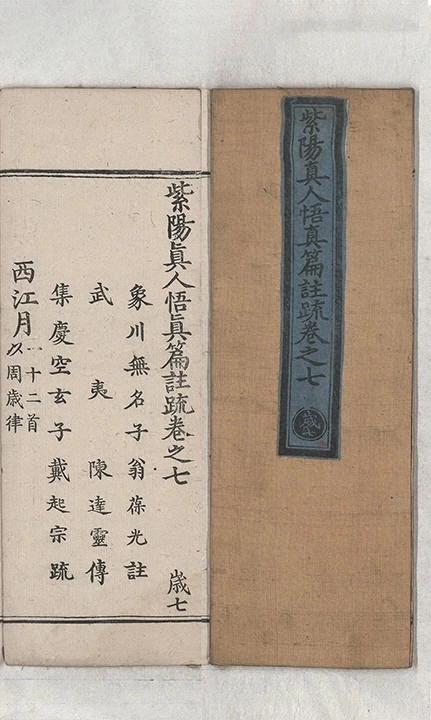 紫陽真人悟真篇註疏卷之七
歲七
紫陽眞人悟眞篇註疏卷之七
歲七
象川無名子翁葆光註
武夷陳達靈傳
集慶空玄子戴起宗疏
西江月
一十二首
以周歲律